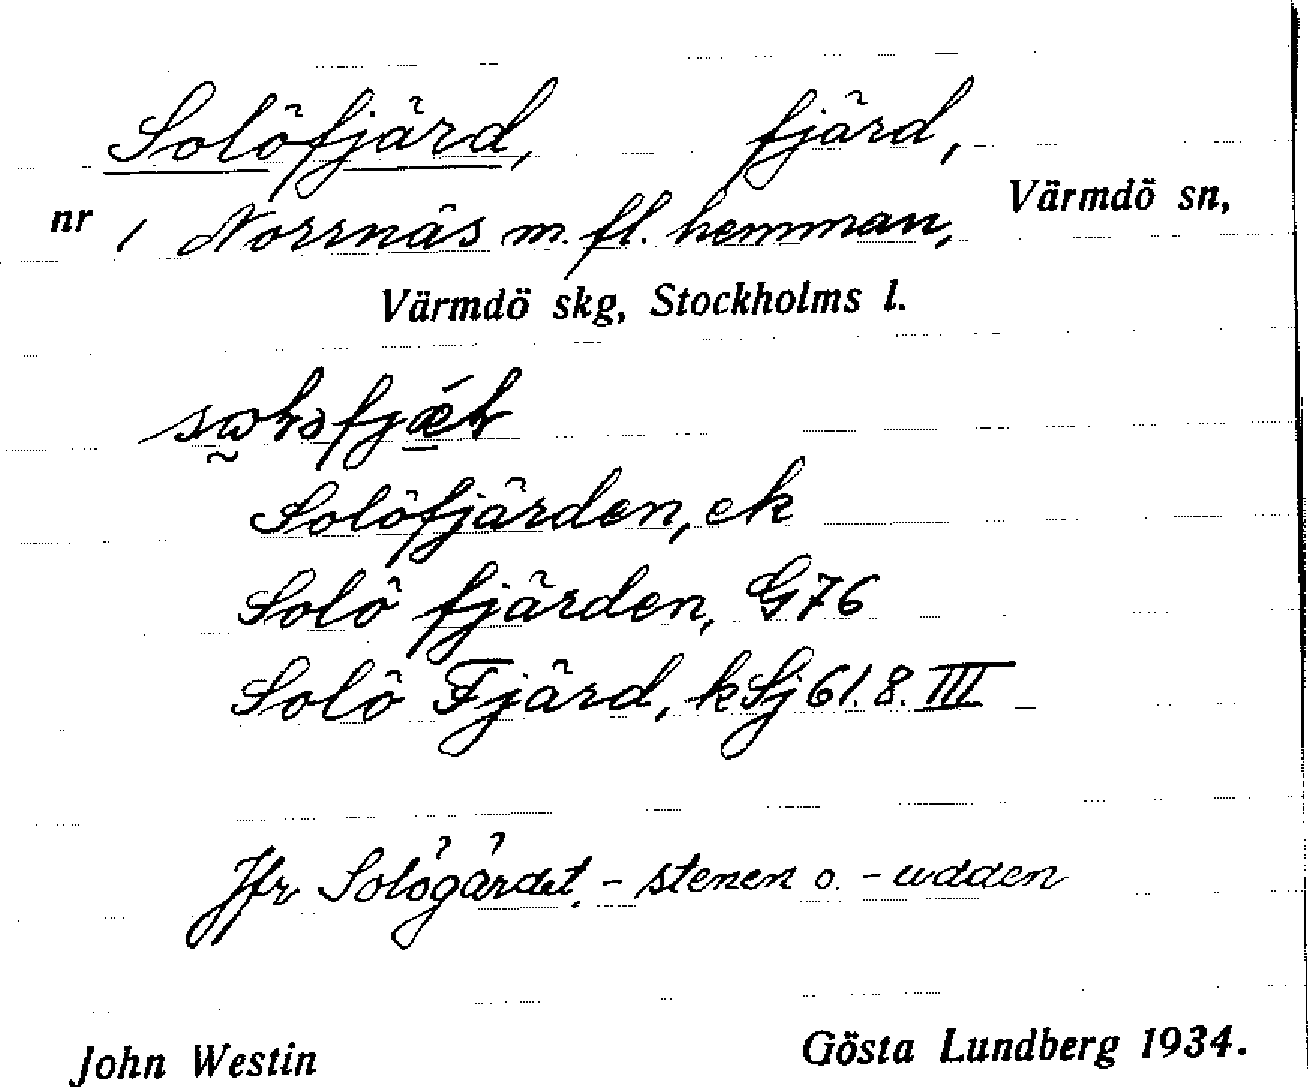 Solöfjärd, fjärd,
nr / Norrnäs m. fl. hemman, Värmdö sn,
Värmdö skg, Stockholms l.
Solöfjärden, ek
Solö fjärden, G76
Solö Fjärd, kSj 61. 8. III
Jfr Sologärdet, - stenen o. - udden
John Westin Gösta Lundberg 1934.